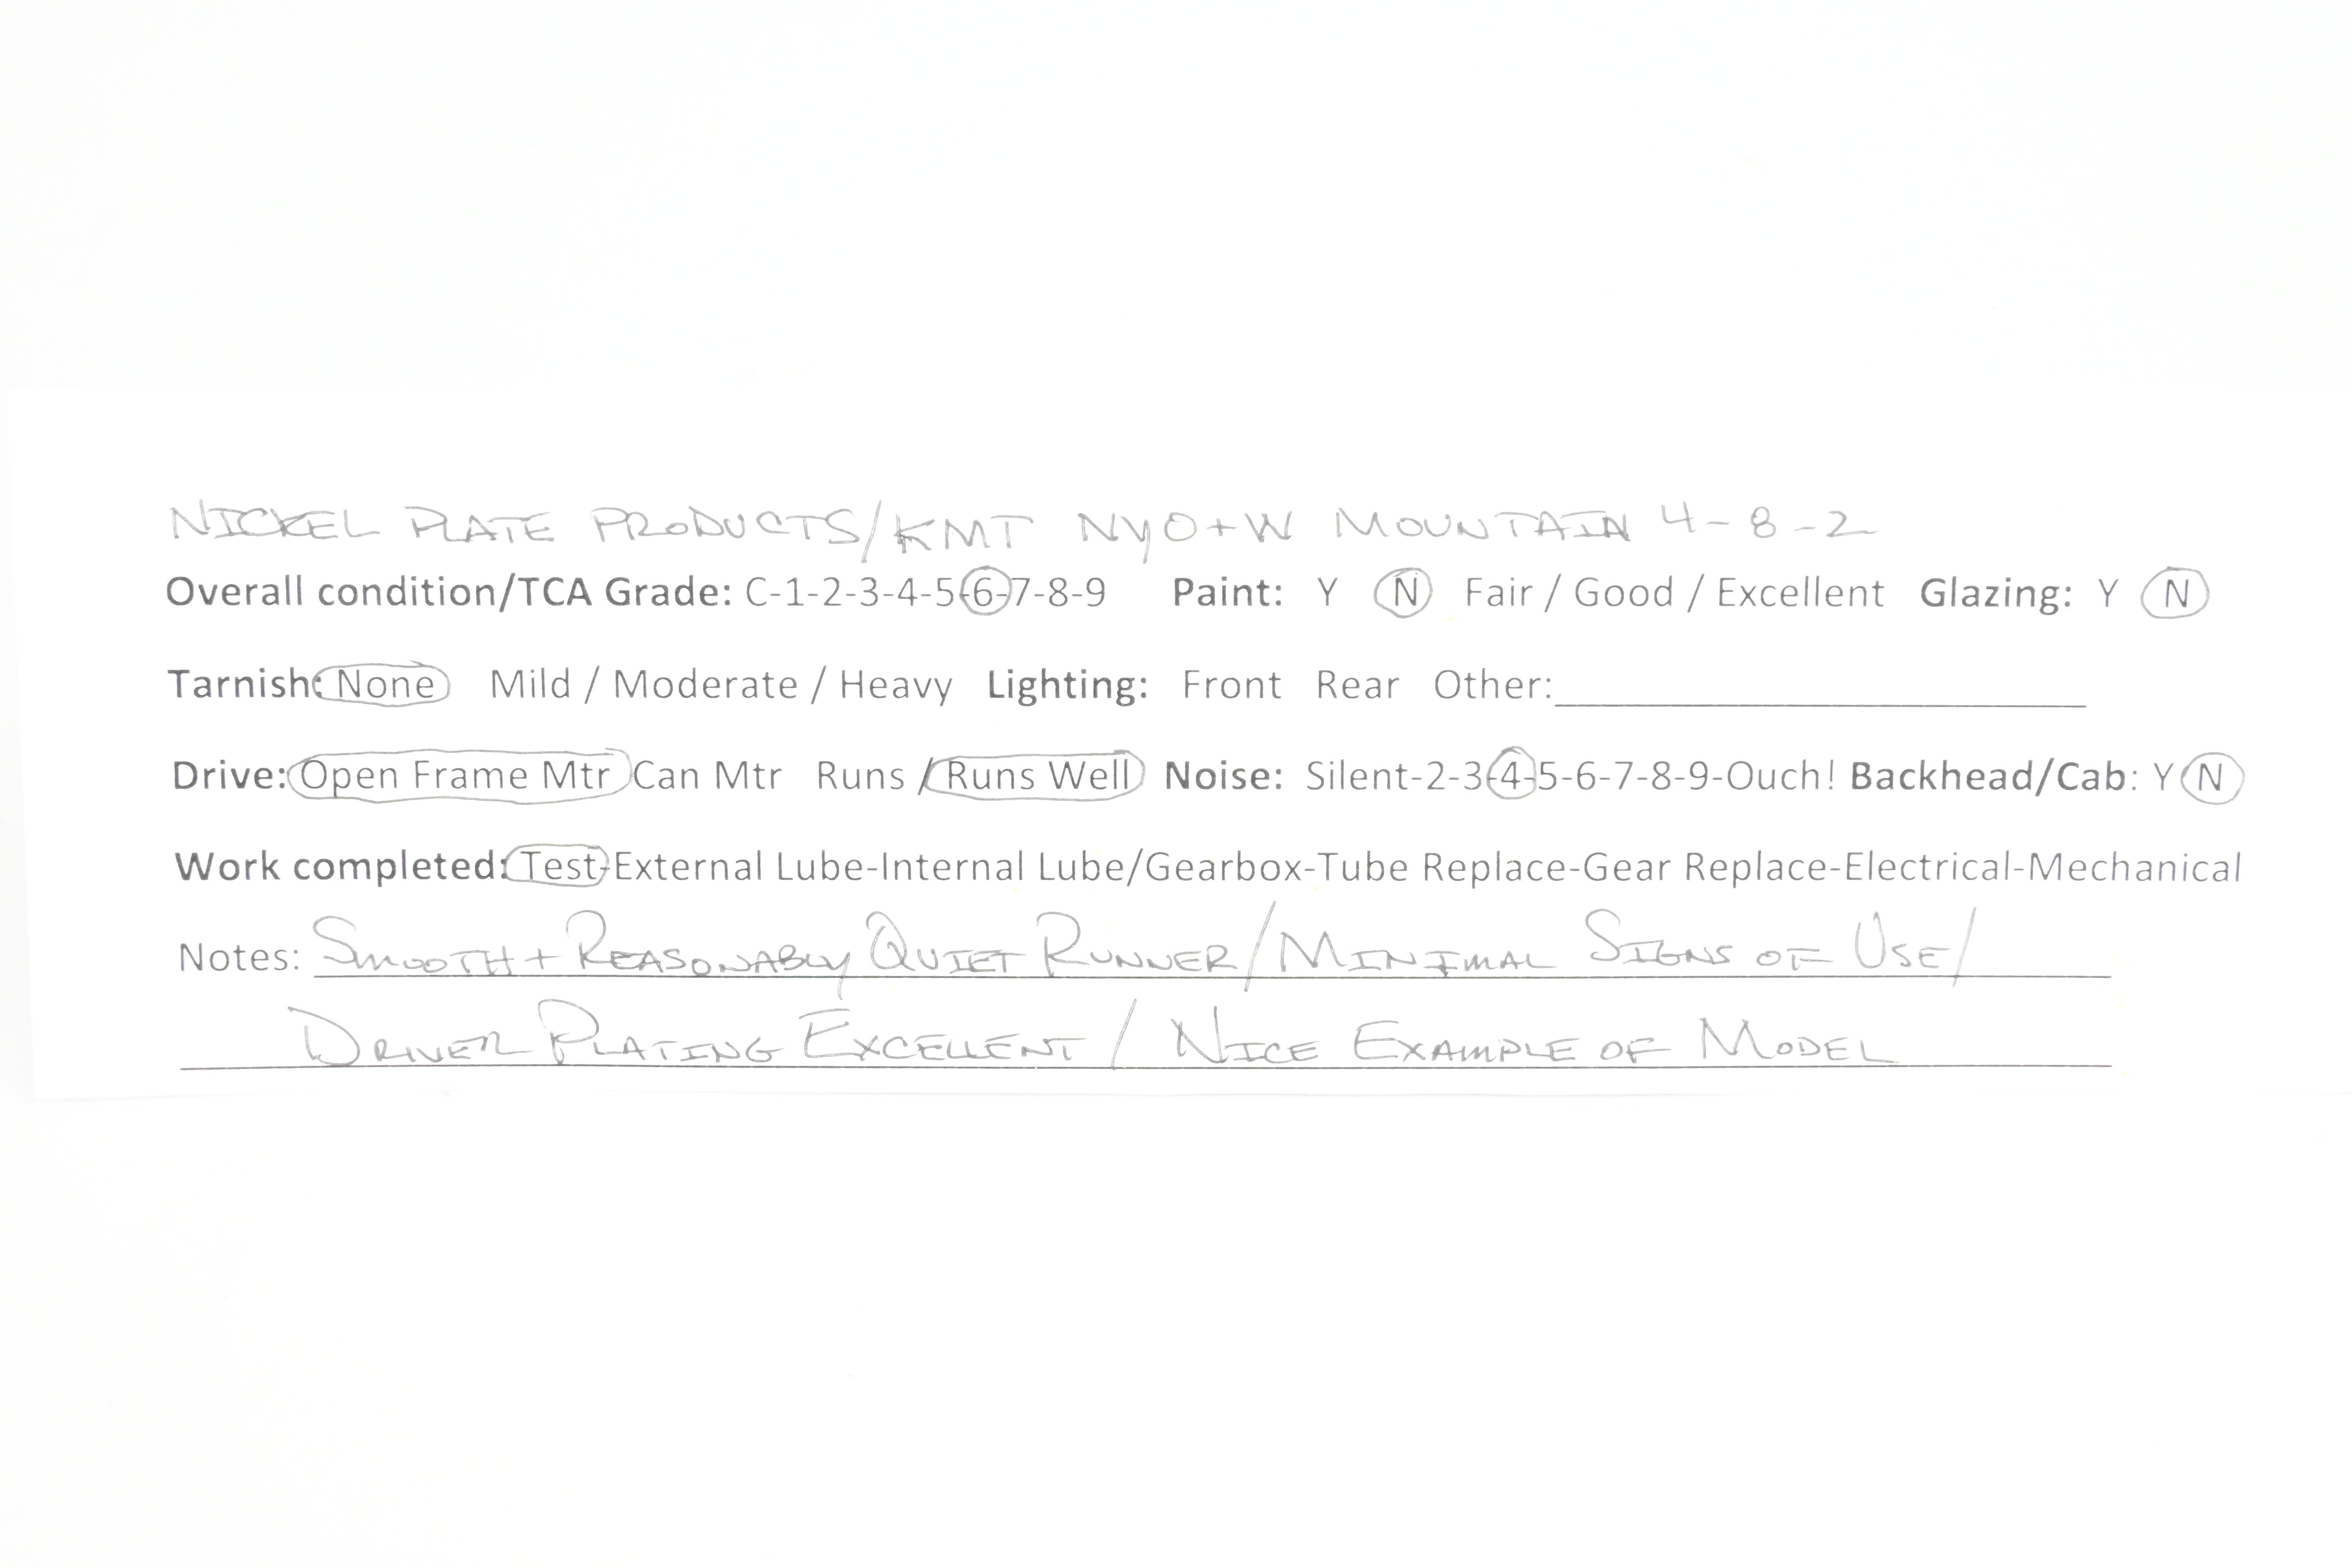 NICKEL PLATE PRODUCTS/KMT NYO+W MOUNTAIN 4-8-2
Overall condition/TCA Grade: C-1-2-3-4-5-6-7-8-9 Paint: Y N Fair / Good / Excellent Glazing: Y N
Tarnish: None Mild / Moderate / Heavy Lighting: Front Rear Other:
Drive: Open Frame Mtr Can Mtr Runs / Runs Well Noise: Silent-2-3-4-5-6-7-8-9-Ouch! Backhead/Cab: Y N
Work completed: Test-External Lube-Internal Lube/Gearbox-Tube Replace-Gear Replace-Electrical-Mechanical
Notes: SMOOTH + REASONABLY QUIET RUNNER/MINIMAL SIGNS OF USE/
DRIVER PLATING EXCELLENT/ NICE EXAMPLE OF MODEL